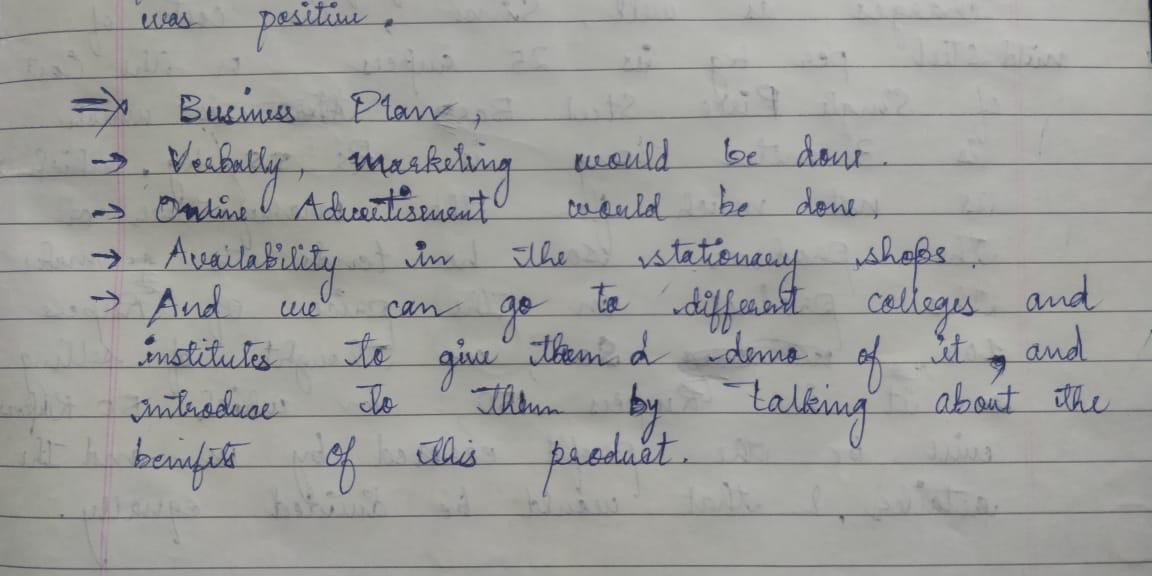 was positive.
⇒ Business Plan,
→ Verbally, marketing would be done.
→ Online Advertisement would be done,
→ Availability in the stationary shops.
→ And we can go to different colleges and
institutes to give them a demo of it, and
introduce to them by talking about the
benifits of this product.